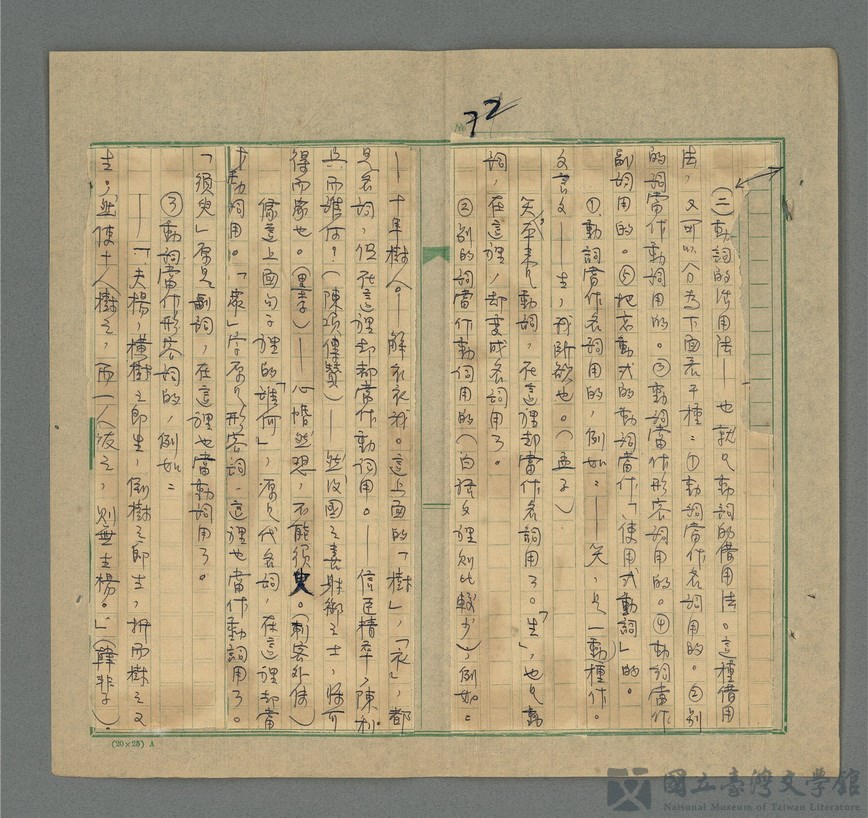 72
(二)動詞的活用法——也就是動詞的借用法。這種借用
法，又可以分為下面若干種：①動詞當作名詞用的。②別
的詞當作動詞用的。③動詞當作形容詞用的。④動詞當作
副詞用的。⑤把表動式的動詞當作「使用式動詞」的。
①動詞當作名詞用的，例如：——笑，是一種動作。
文言文——生，我所欲也。(孟子)
笑原來是動詞，在這裡却當作名詞用了。「生」，也是動
詞，在這裡，却變成名詞用了。
②別的詞當作動詞用的(白話文裡則比較少)，例如。
——十年樹人。——解衣衣我。這上面的「樹」，「衣」，都
是名詞，但在這裡却都當作動詞用。——信臣精卒，陳利
兵而誰何？(陳項傳贊)——然後國之養射御之士，將可
得而眾也。(墨子)——心惛然恐，不能須臾。(刺客外傳)
像這上面句子裡的「誰何」，原是代名詞，在這裡却當
作動詞用。「眾」字原是形容詞，這裡也當作動詞用了。
「須臾」原是副詞，在這裡也當動詞用了。
③動詞當作形容詞的，例如：
——「夫楊，橫樹之即生，倒樹之即生，折而樹之又
生，然使十人樹之，而一人拔之，則無生楊。」(韓非子)。
(20×25) A
國立臺灣文學館
National Museum of Taiwan Literature